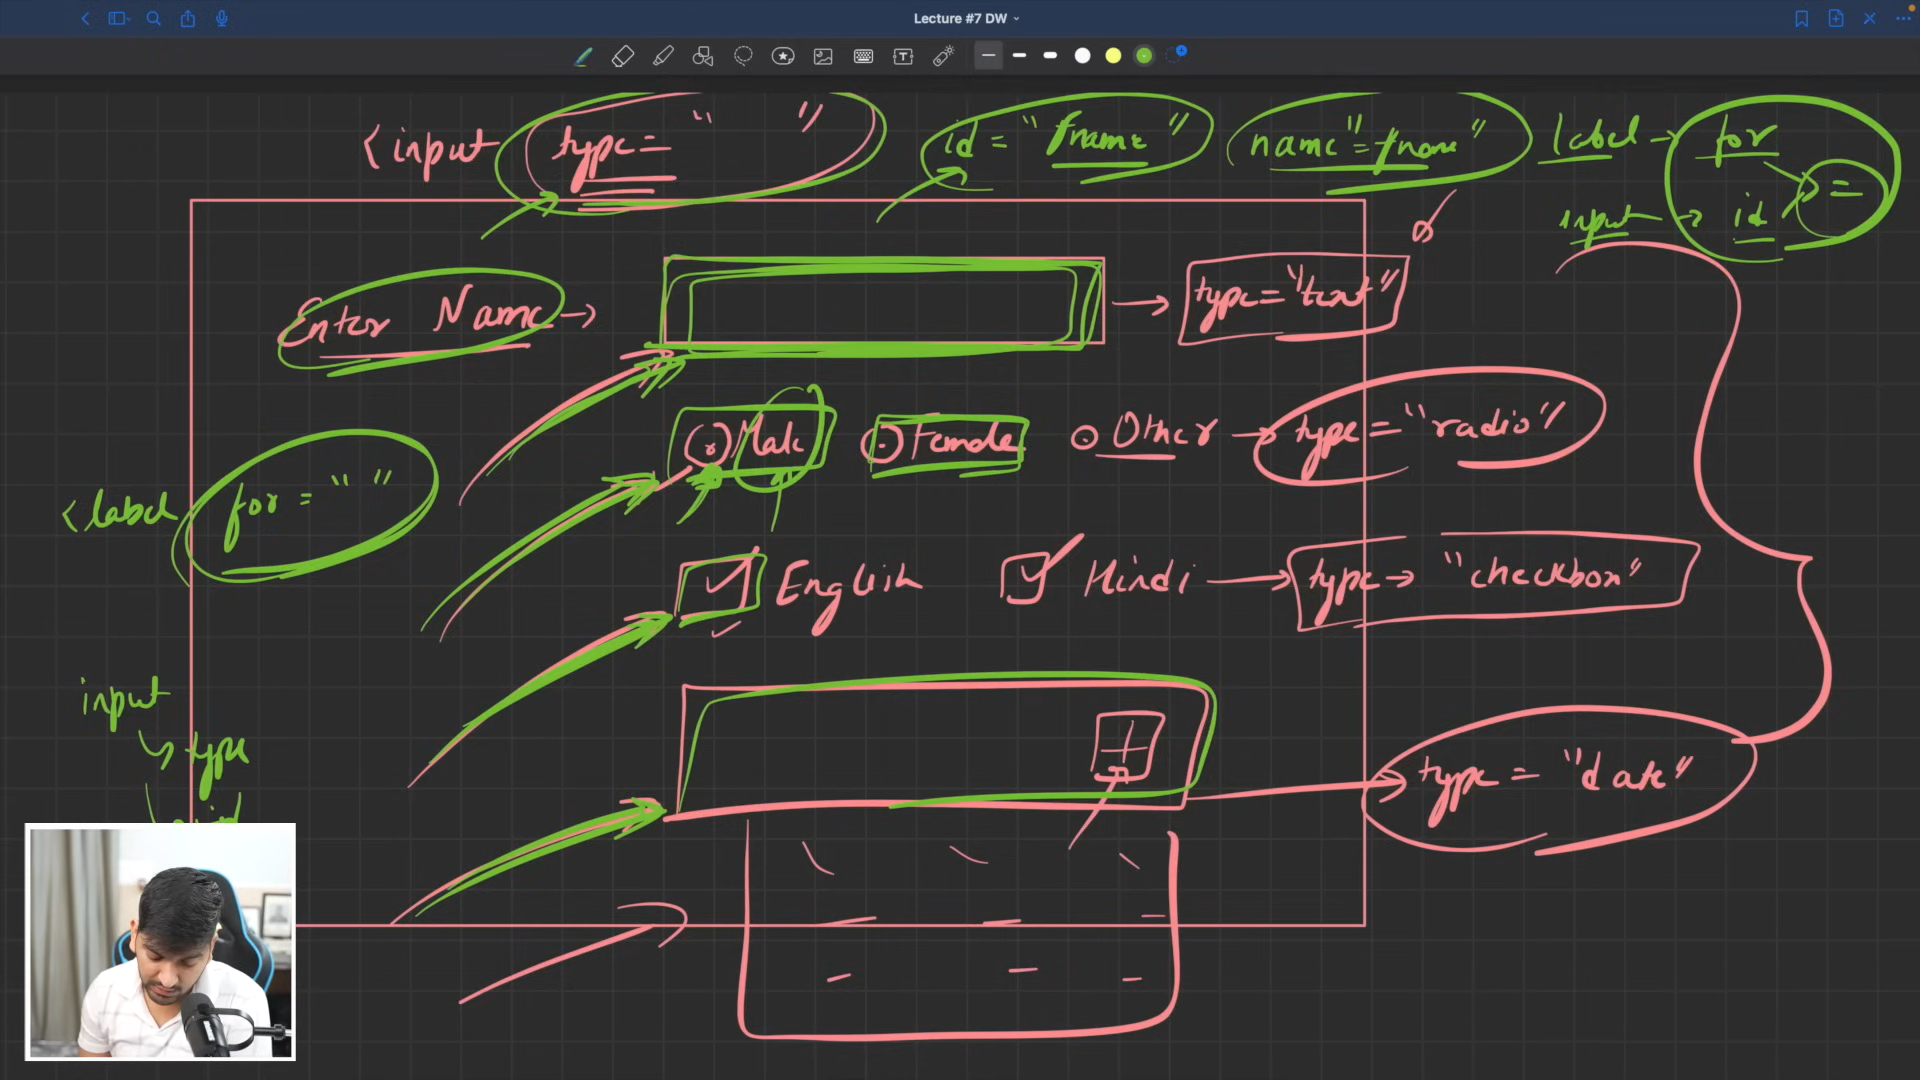 Lecture #7 DW
<input type= " " id = "fname" name"=fname" label → for
input → id =
Enter Name → → type="text"
Male Female Other → type="radio"
<label for = " "
English Hindi → type → "checkbox"
input
type
type = "date"
id